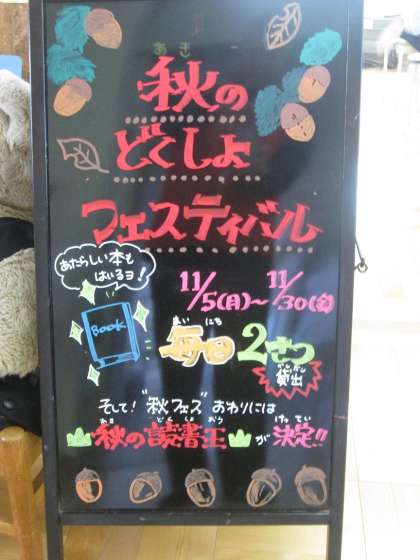 あき
秋の
どくしょ
フェスティバル
あたらしい本も
はいるヨ!
BOOK
11/5(月)〜11/30(金)
まい にち
毎日2さつ
かしだし
貸出
そして!"秋フェス"おわりには
あき どくしょ おう けってい
秋の読書王が決定!!